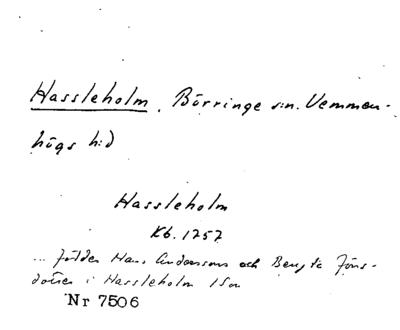 Hassleholm, Börringe s:n. Vemmen-
högs h:d
Hassleholm
Kb. 1757
... föddes Hans Anderssons och Bengta Jöns-
dotters i Hassleholm Son
Nr 7506